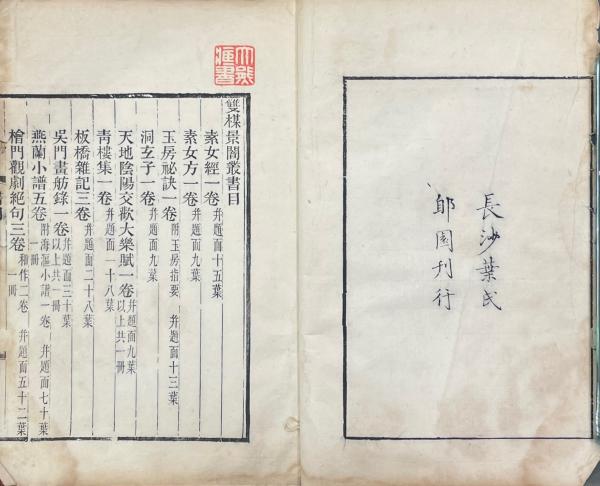 長沙葉氏
郋園刊行
雙楳景闇叢書目
素女經一卷 幷題面十五葉
素女方一卷 幷題面九葉
玉房祕訣一卷 附玉房指要 幷題面十三葉
洞玄子一卷 幷題面九葉
天地陰陽交歡大樂賦一卷 幷題面九葉 以上共一冊
靑樓集一卷 幷題面一十八葉
板橋雜記三卷 幷題面二十八葉
吳門畫舫錄一卷 幷題面三十葉 以上共一冊
燕蘭小譜五卷 附海漚小譜一卷 幷題面七十葉 一冊
檜門觀劇絕句三卷 和作二卷 幷題面五十二葉 一冊